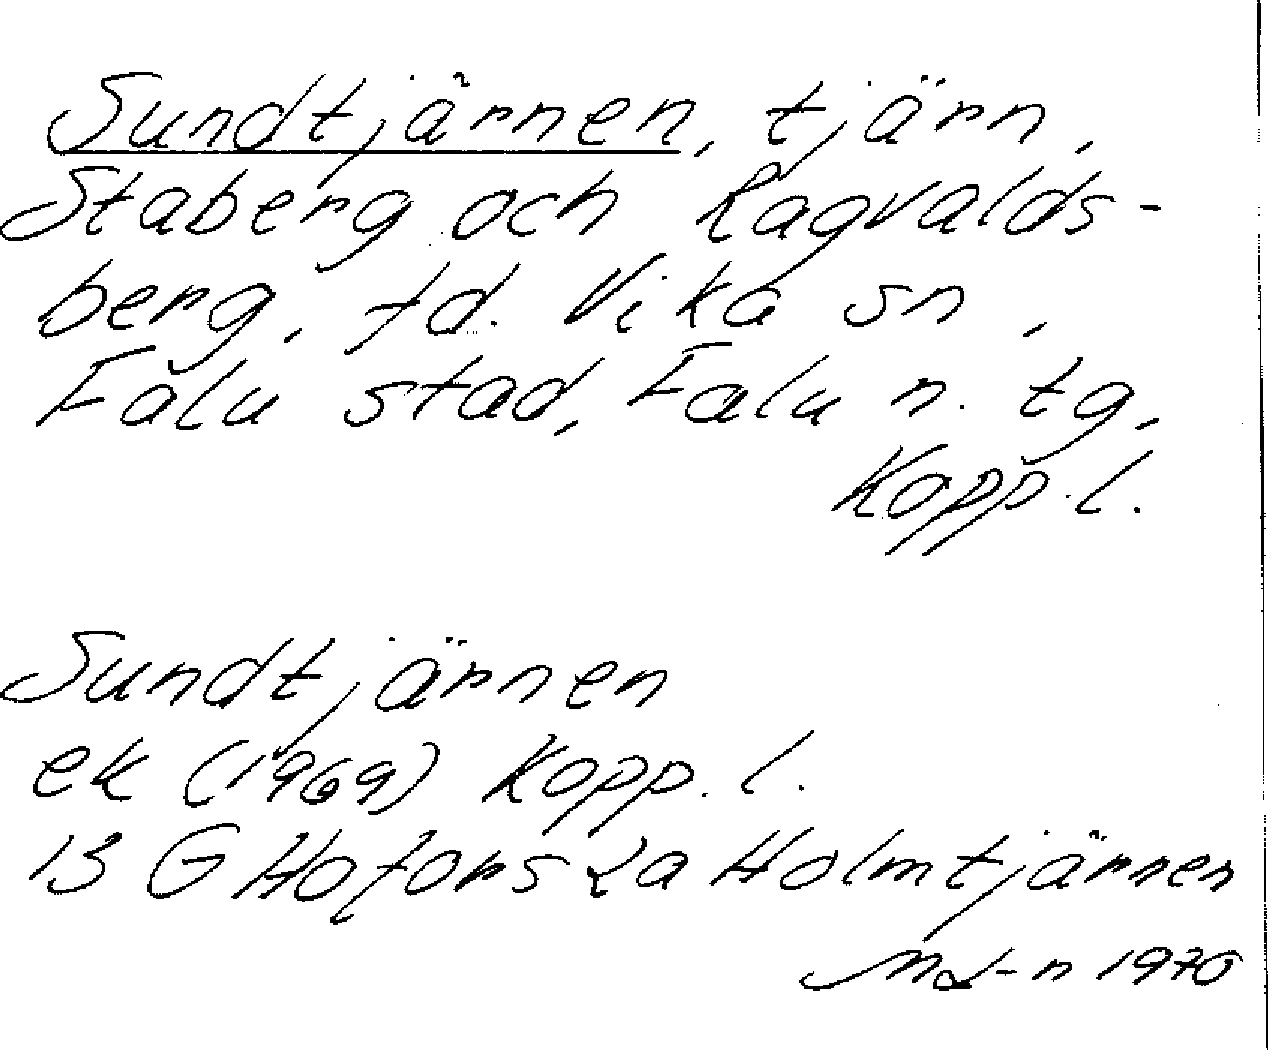 Sundtjärnen, tjärn,
Staberg och Ragvalds-
berg, fd. Vika sn,
Falu stad, Falu n. tg,
Kopp. l.
Sundtjärnen
ek (1969) Kopp. l.
13 G Hofors 2a Holmtjärnen
1970